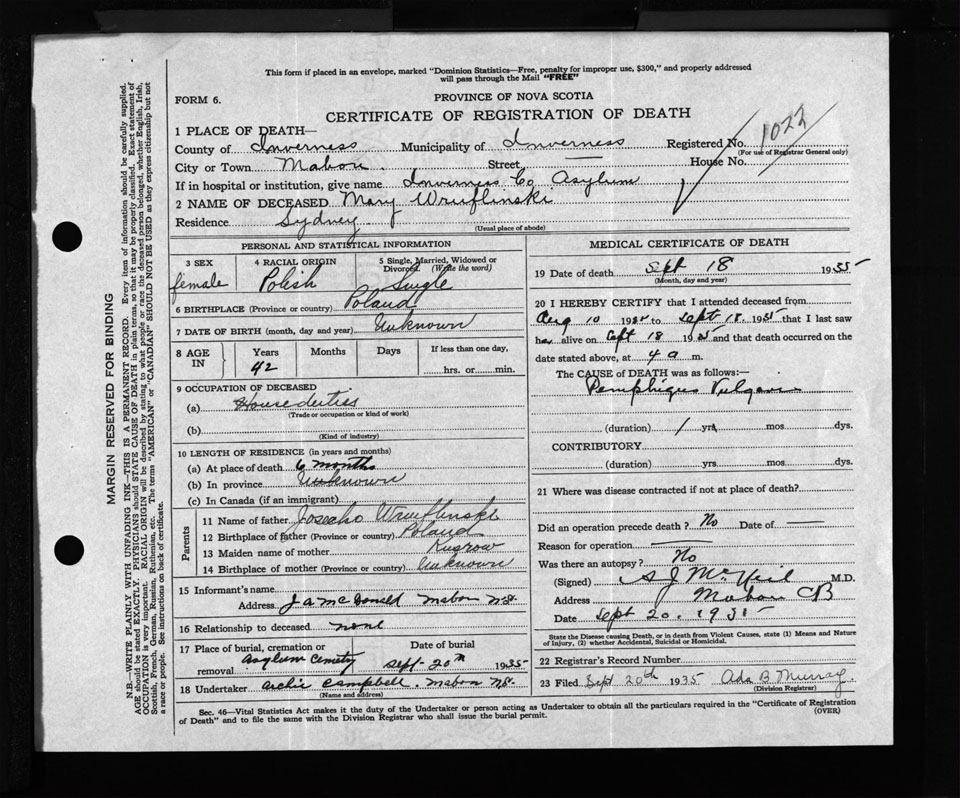 This form if placed in an envelope, marked "Dominion Statistics—Free, penalty for improper use, $300," and properly addressed
will pass through the Mail "FREE"
FORM 6.
PROVINCE OF NOVA SCOTIA
CERTIFICATE OF REGISTRATION OF DEATH
1 PLACE OF DEATH—
County of Inverness Municipality of Inverness Registered No. 1022
(For use of Registrar General only)
City or Town Mabou Street — House No.
If in hospital or institution, give name Inverness Co Asylum
2 NAME OF DECEASED Mary Wruflinski
Residence Sydney
(Usual place of abode)
PERSONAL AND STATISTICAL INFORMATION
3 SEX 4 RACIAL ORIGIN 5 Single, Married, Widowed or Divorced. (Write the word)
female Polish Single
6 BIRTHPLACE (Province or country) Poland
7 DATE OF BIRTH (month, day and year) Unknown
8 AGE IN Years Months Days If less than one day,
42 hrs. or min.
9 OCCUPATION OF DECEASED
(a) House duties
(Trade or occupation or kind of work)
(b)
(Kind of industry)
10 LENGTH OF RESIDENCE (in years and months)
(a) At place of death 6 months
(b) In province Unknown
(c) In Canada (if an immigrant)
Parents
11 Name of father Wruflinski
12 Birthplace of father (Province or country) Poland
13 Maiden name of mother
14 Birthplace of mother (Province or country) Unknown
15 Informant's name
Address J A McDonald Mabou N.S.
16 Relationship to deceased none
17 Place of burial, cremation or removal Asylum Cemetry Date of burial Sept-20th 1935
18 Undertaker Archie Campbell. Mabou N.S.
(Name and address)
MEDICAL CERTIFICATE OF DEATH
19 Date of death Sept 18 1935
(Month, day and year)
20 I HEREBY CERTIFY that I attended deceased from
Aug 10 1935 to Sept. 18. 1935 that I last saw
her alive on Sept 18 1935 and that death occurred on the
date stated above, at 4 a m.
The CAUSE of DEATH was as follows:—
Pemphigus Vulgaris
(duration) 1 yrs. mos dys.
CONTRIBUTORY
(duration) yrs. mos. dys.
21 Where was disease contracted if not at place of death?
Did an operation precede death? No Date of —
Reason for operation —
Was there an autopsy? No
(Signed) McNeil M.D.
Address Mabou CB
Date Sept 20. 1935
State the Disease causing Death, or in death from Violent Causes, state (1) Means and Nature
of Injury, (2) whether Accidental, Suicidal or Homicidal.
22 Registrar's Record Number
23 Filed Sept 20th 1935 Ada B Murray.
(Division Registrar)
Sec. 46—Vital Statistics Act makes it the duty of the Undertaker or person acting as Undertaker to obtain all the particulars required in the "Certificate of Registration
of Death" and to file the same with the Division Registrar who shall issue the burial permit.
(OVER)
MARGIN RESERVED FOR BINDING
N.B.—WRITE PLAINLY WITH UNFADING INK—THIS IS A PERMANENT RECORD. Every item of information should be carefully supplied.
AGE should be stated EXACTLY. PHYSICIANS should STATE CAUSE OF DEATH in plain terms, so that it may be properly classified. Exact statement of
OCCUPATION is very important. RACIAL ORIGIN will be described by stating to what people or race the deceased person belonged, whether English, Irish,
Scottish, French, German, Russian, Ruthenian, etc. The terms "AMERICAN" or "CANADIAN" SHOULD NOT BE USED as they express citizenship but not
a race or people. See instructions on back of certificate.